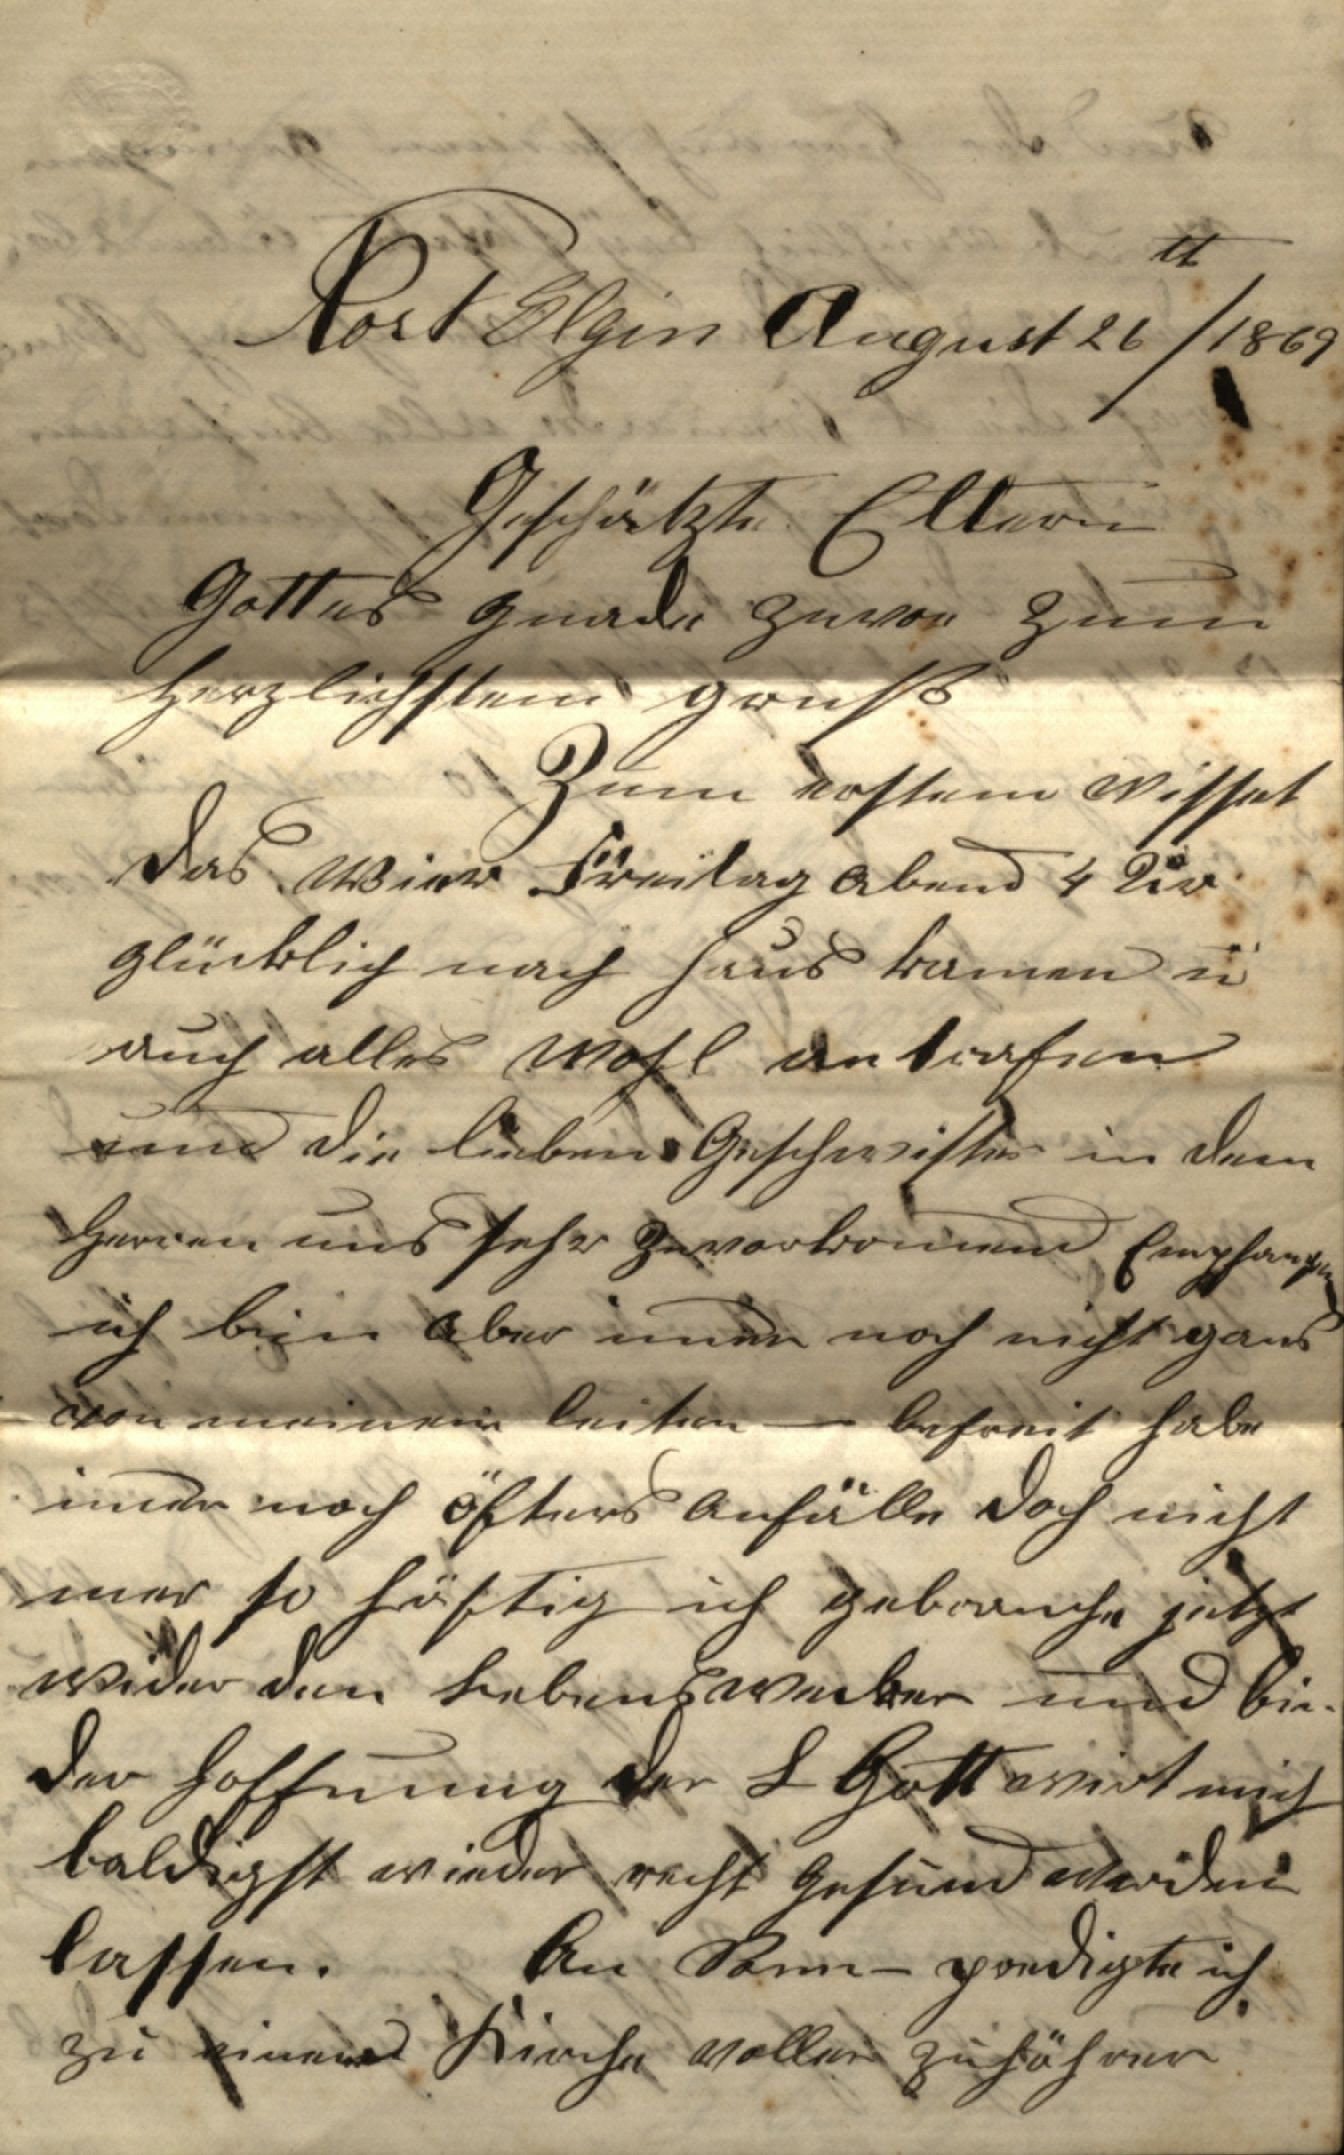 Port Elgin August 26tt/1869
Geschätzte Eltern
Gottes gnade zuvor zum
herzlichstem gruß
Zum erstem wisset
das wier Freitag abend 4 Uhr
glücklich nach haus kamen ü
auch alles wohl antrafen
und die lieben Geschwister in dem
Herren uns sehr zuvorkomend Empfangen
ich bin aber imer noch nicht gans
von meinem leiten – befreit habe
imer noch öfters anfälle doch nicht
mer so häftig ich gebrauche jetzt
wider den Lebenswecker und bin
der hoffnung der L Gott wirt mich
baldigst wieder recht gesund werden
lassen. An Sonn– predigte ich
zu einer Kirche voller zuhöhrer